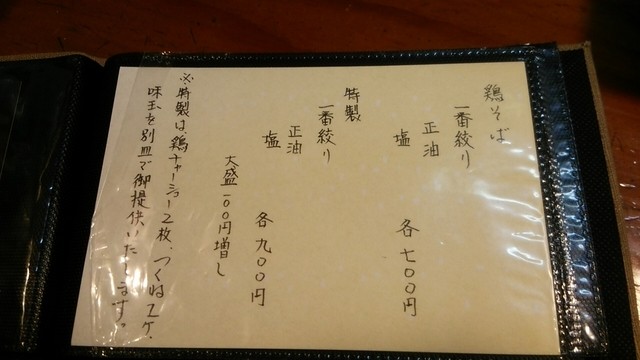 鶏そば
一番絞り
正油
塩
各 七〇〇円
特製
一番絞り
正油
塩
各 九〇〇円
大盛一〇〇円増し
※特製は、鶏チャーシュー2枚、つくね2ケ、
味玉を別皿で御提供いたします。